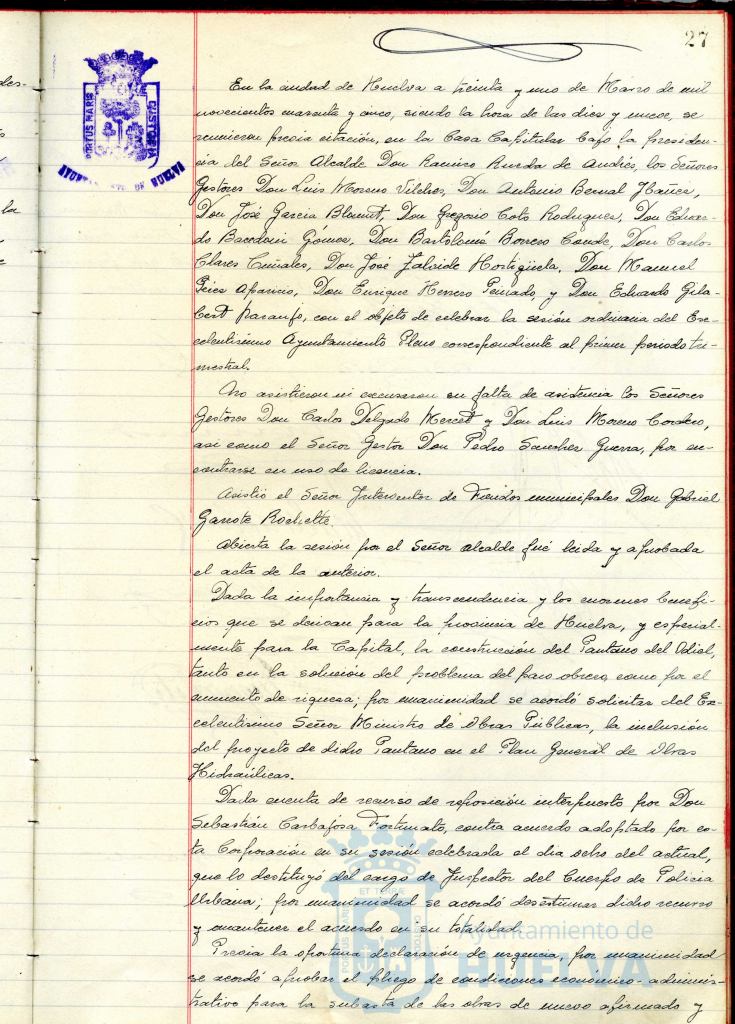 27
PORTUS MARIS
CUSTODIA
AYUNTAMIENTO DE HUELVA
des-
la
En la ciudad de Huelva a treinta y uno de Marzo de mil
novecientos cuarenta y cinco, siendo la hora de las diez y nueve, se
reunieron previa citación, en la Casa Capitular bajo la presiden-
cia del Señor Alcalde Don Ramiro de Andrés, los Señores
Gestores Don Luis Moreno Vilches, Don Antonio Bernal Ibañez,
Don José Garcia Don Gregorio Coto Rodriguez, Don Eduar-
do Gómez, Don Bartolomé Borrero Conde, Don Carlos
Clares Don José Don Manuel
Perez Aparicio, Don Enrique Herrero Peinado, y Don Eduardo Gila-
bert Naranfo, con el objeto de celebrar la sesión ordinaria del Ex-
celentisimo Ayuntamiento Pleno correspondiente al primer periodo tri-
mestral.
No asistieron ni excusaron su falta de asistencia los Señores
Gestores Don Carlos Delgado Mercet y Don Luis Moreno Cordero,
asi como el Señor Gestor Don Pedro Sanchez Guerra, por en-
contrarse en uso de licencia.
Asistió el Señor Interventor de Fondos municipales Don Gabriel
Garrote Rochette.
Abierta la sesión por el Señor alcalde fué leida y aprobada
el acta de la anterior.
Dada la importancia y transcendencia y los enormes benefi-
cios que se derivan para la provincia de Huelva, y especial-
mente para la Capital, la construcción del Pantano del Odiel,
tanto en la solución del problema del paro obrero, como por el
aumento de riqueza; por unanimidad se acordó solicitar del Ex-
celentisimo Señor Ministro de Obras Públicas, la inclusión
del proyecto de dicho Pantano en el Plan General de Obras
Hidraúlicas.
Dada cuenta de recurso de reposición interpuesto por Don
Sebastián Carbajosa Fortunato, contra acuerdo adoptado por es-
ta Corporación en su sesión celebrada el dia ocho del actual,
que lo destituyó del cargo de Inspector del Cuerpo de Policia
Urbana; por unanimidad se acordó desestimar dicho recurso
y mantener el acuerdo en su totalidad.
Previa la oportuna declaración de urgencia, por unanimidad
se acordó aprobar el pliego de condiciones económico-adminis-
trativo para la subasta de las obras de nuevo afirmado y
ET TERRE
PORTUS MARIS
CUSTODIA
Ayuntamiento de
HUELVA